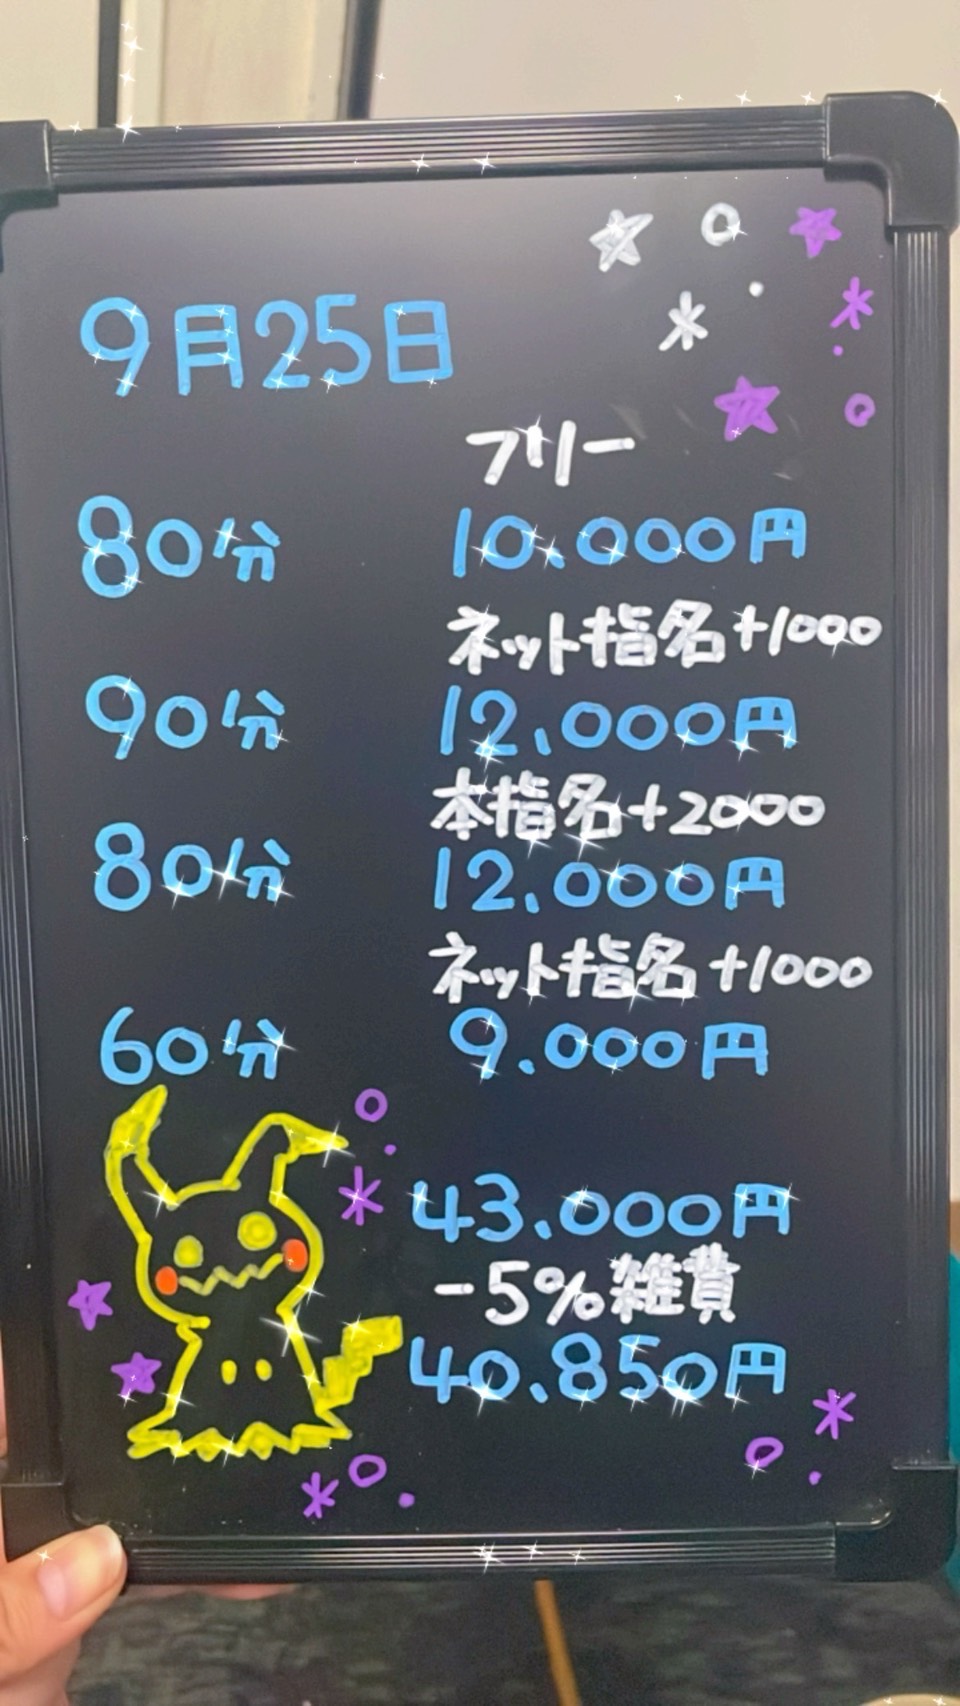 9月25日
フリー
80分 10.000円
ネット指名+1000
90分 12.000円
本指名+2000
80分 12.000円
ネット指名+1000
60分 9.000円
43.000円
-5%雑費
40.850円